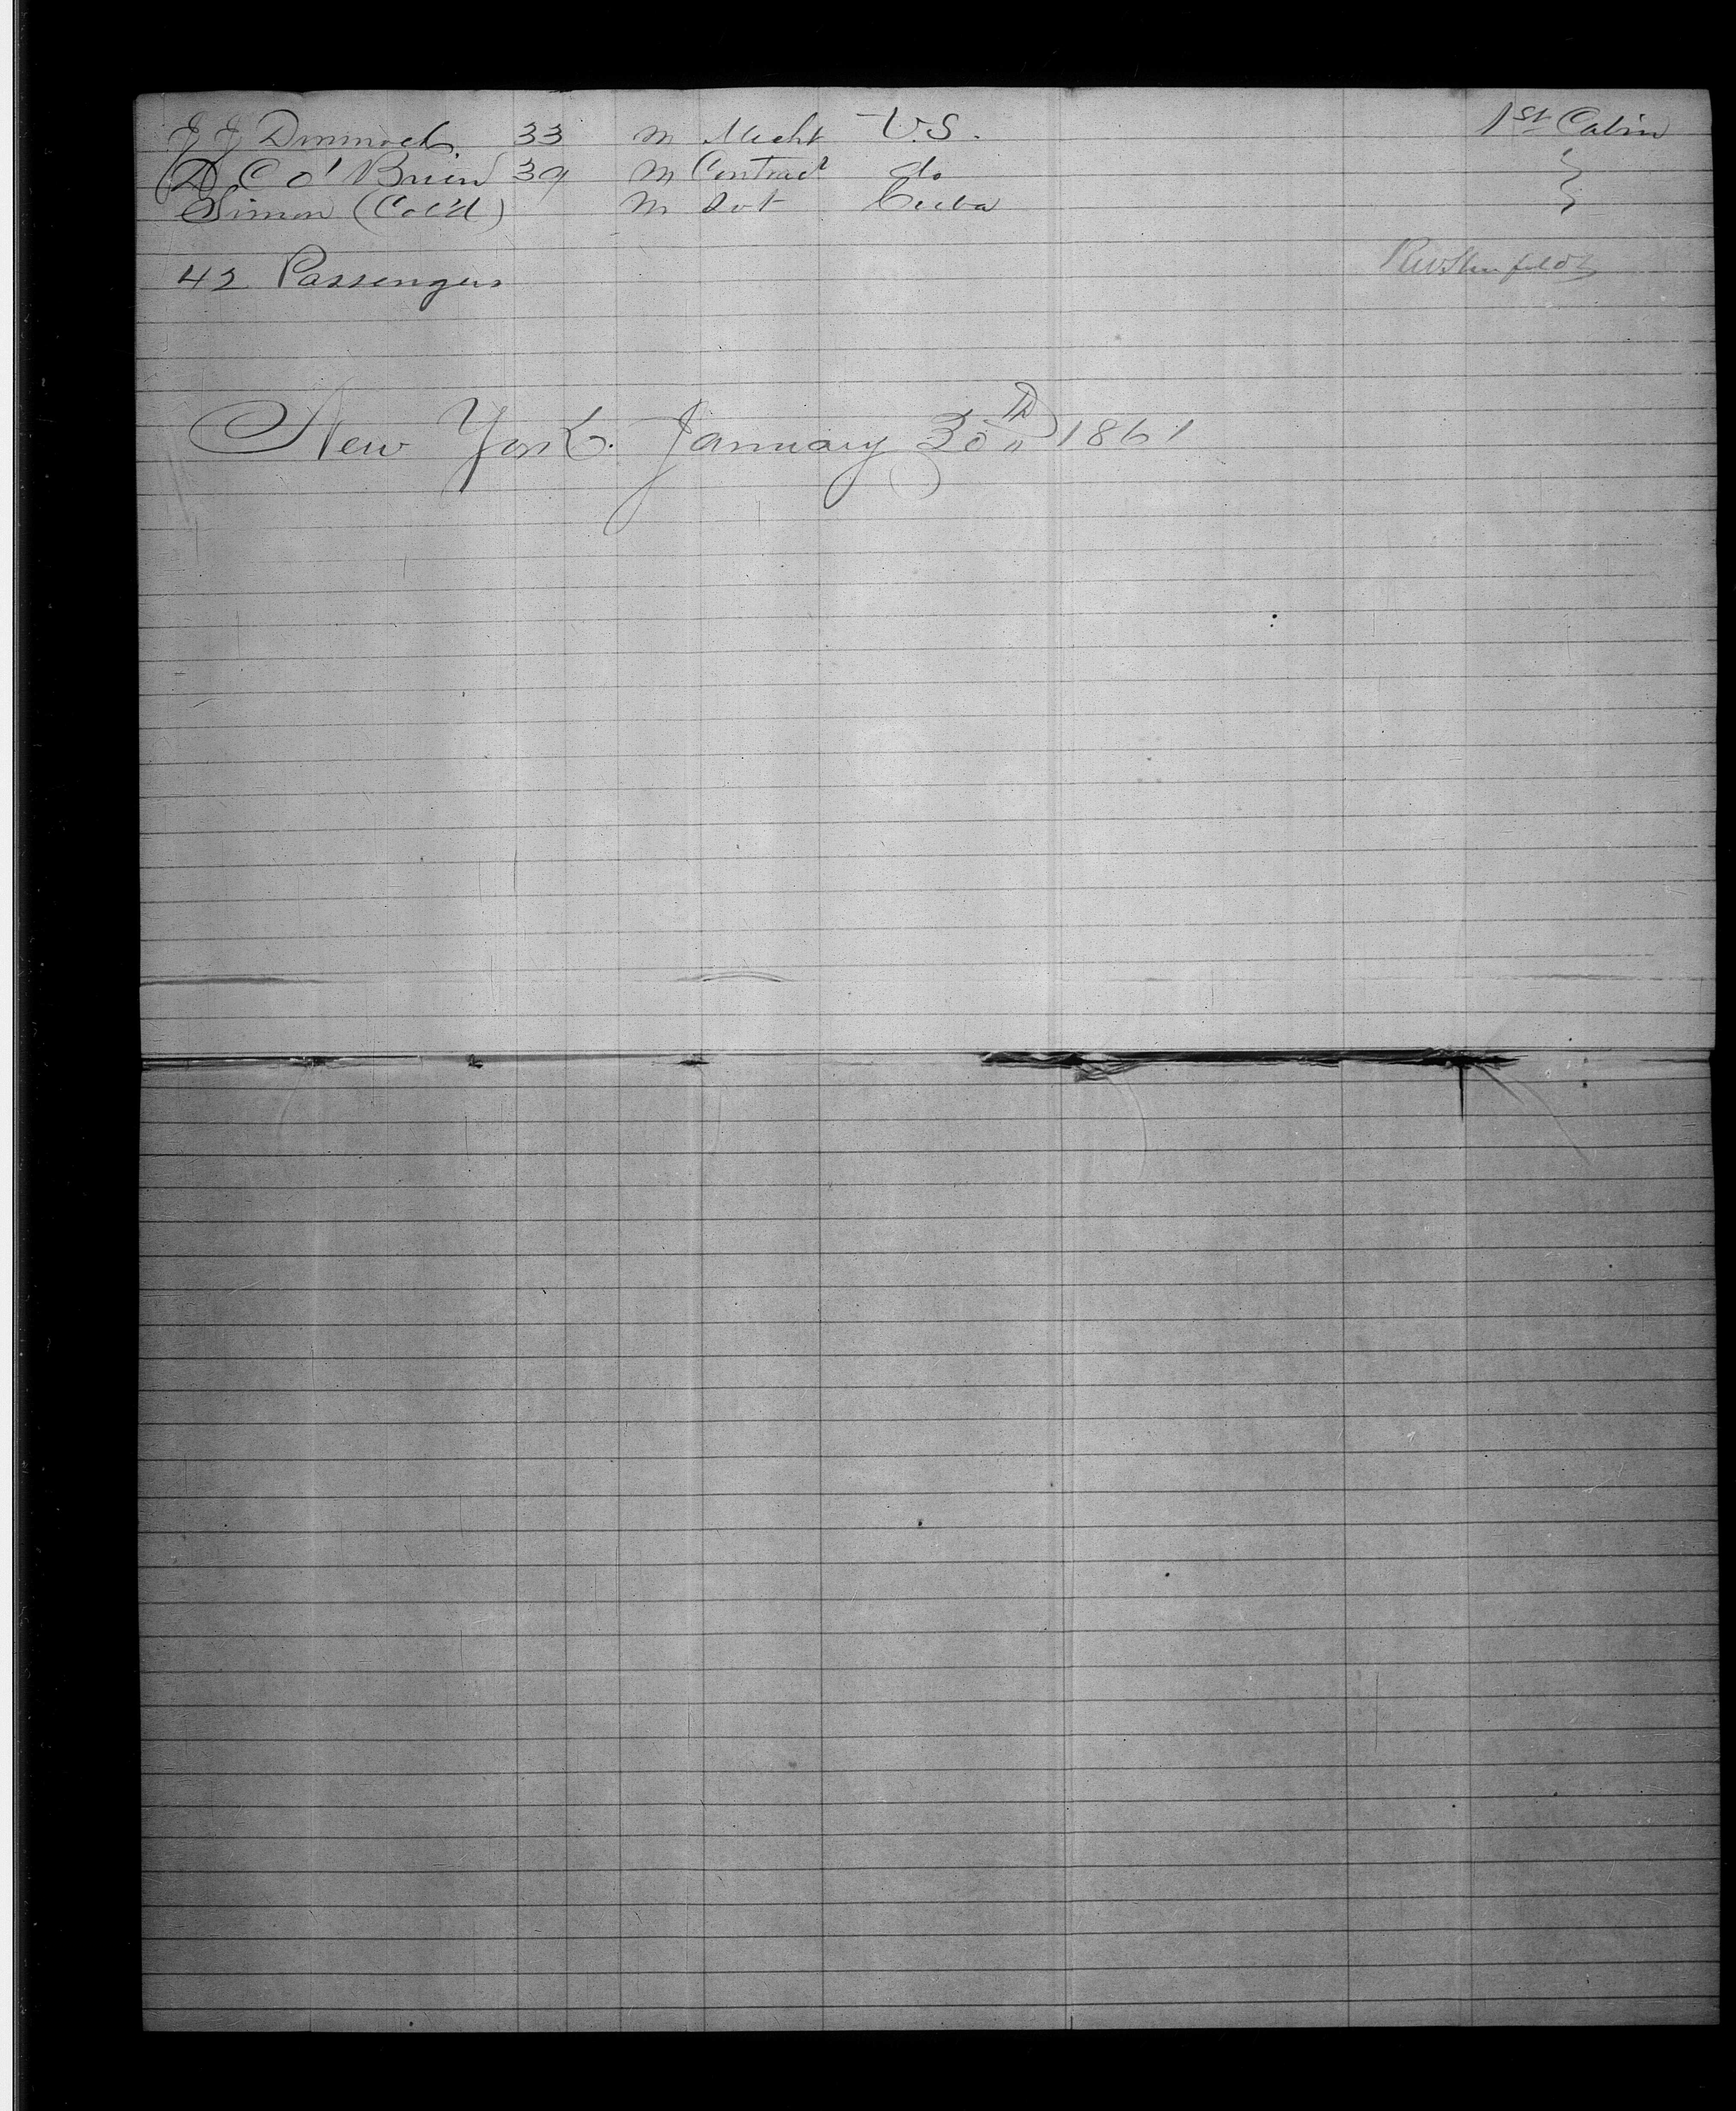 J J Dimmock 33 m Mecht U.S. 1st Cabin
D C O'Brien 39 m Contract do
Simon (Col'd) m Svt Cuba
42 Passengers
New York. January 30th 1861